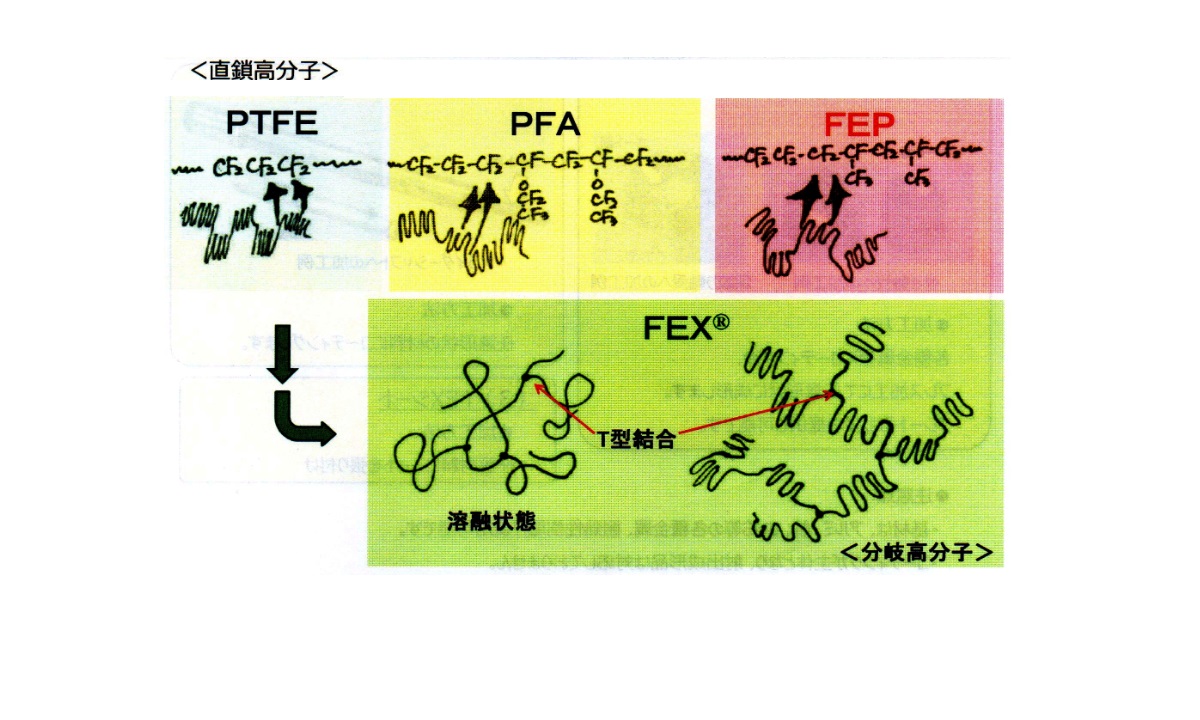 ＜直鎖高分子＞
PTFE
CF₂CF₂CF₂
PFA
CF₂-CF₂-CF₂-CF-CF₂-CF-CF₂
O O
CF₂ CF₂
CF₃ CF₃
FEP
CF₂ CF₂-CF₂-CF-CF₂-CF-CF₂
CF₃ CF₃
FEX®
T型結合
溶融状態
＜分岐高分子＞